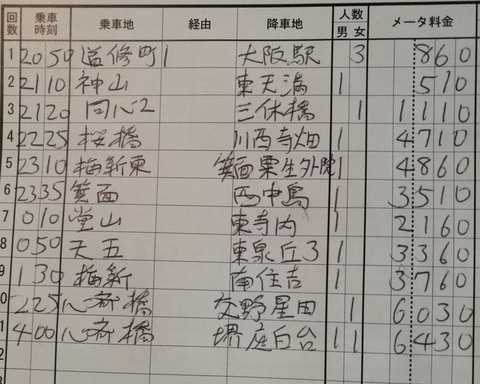 回数 乗車時刻 乗車地 経由 降車地 人数 男 女 メータ料金
1 2050 道修町1 大阪駅 3 860
2 2110 神山 東天満 1 510
3 2120 同心2 三休橋 1 1110
4 2225 桜橋 川西寺畑 1 4710
5 2310 梅新東 箕面粟生外院 1 4860
6 2335 箕面 西中島 1 3510
7 010 堂山 東寺内 1 2160
8 050 天五 東泉丘3 1 3360
9 130 梅新 南住吉 1 3760
0 225 心斎橋 交野星田 1 6030
1 400 心斎橋 堺庭白台 1 1 6430
2